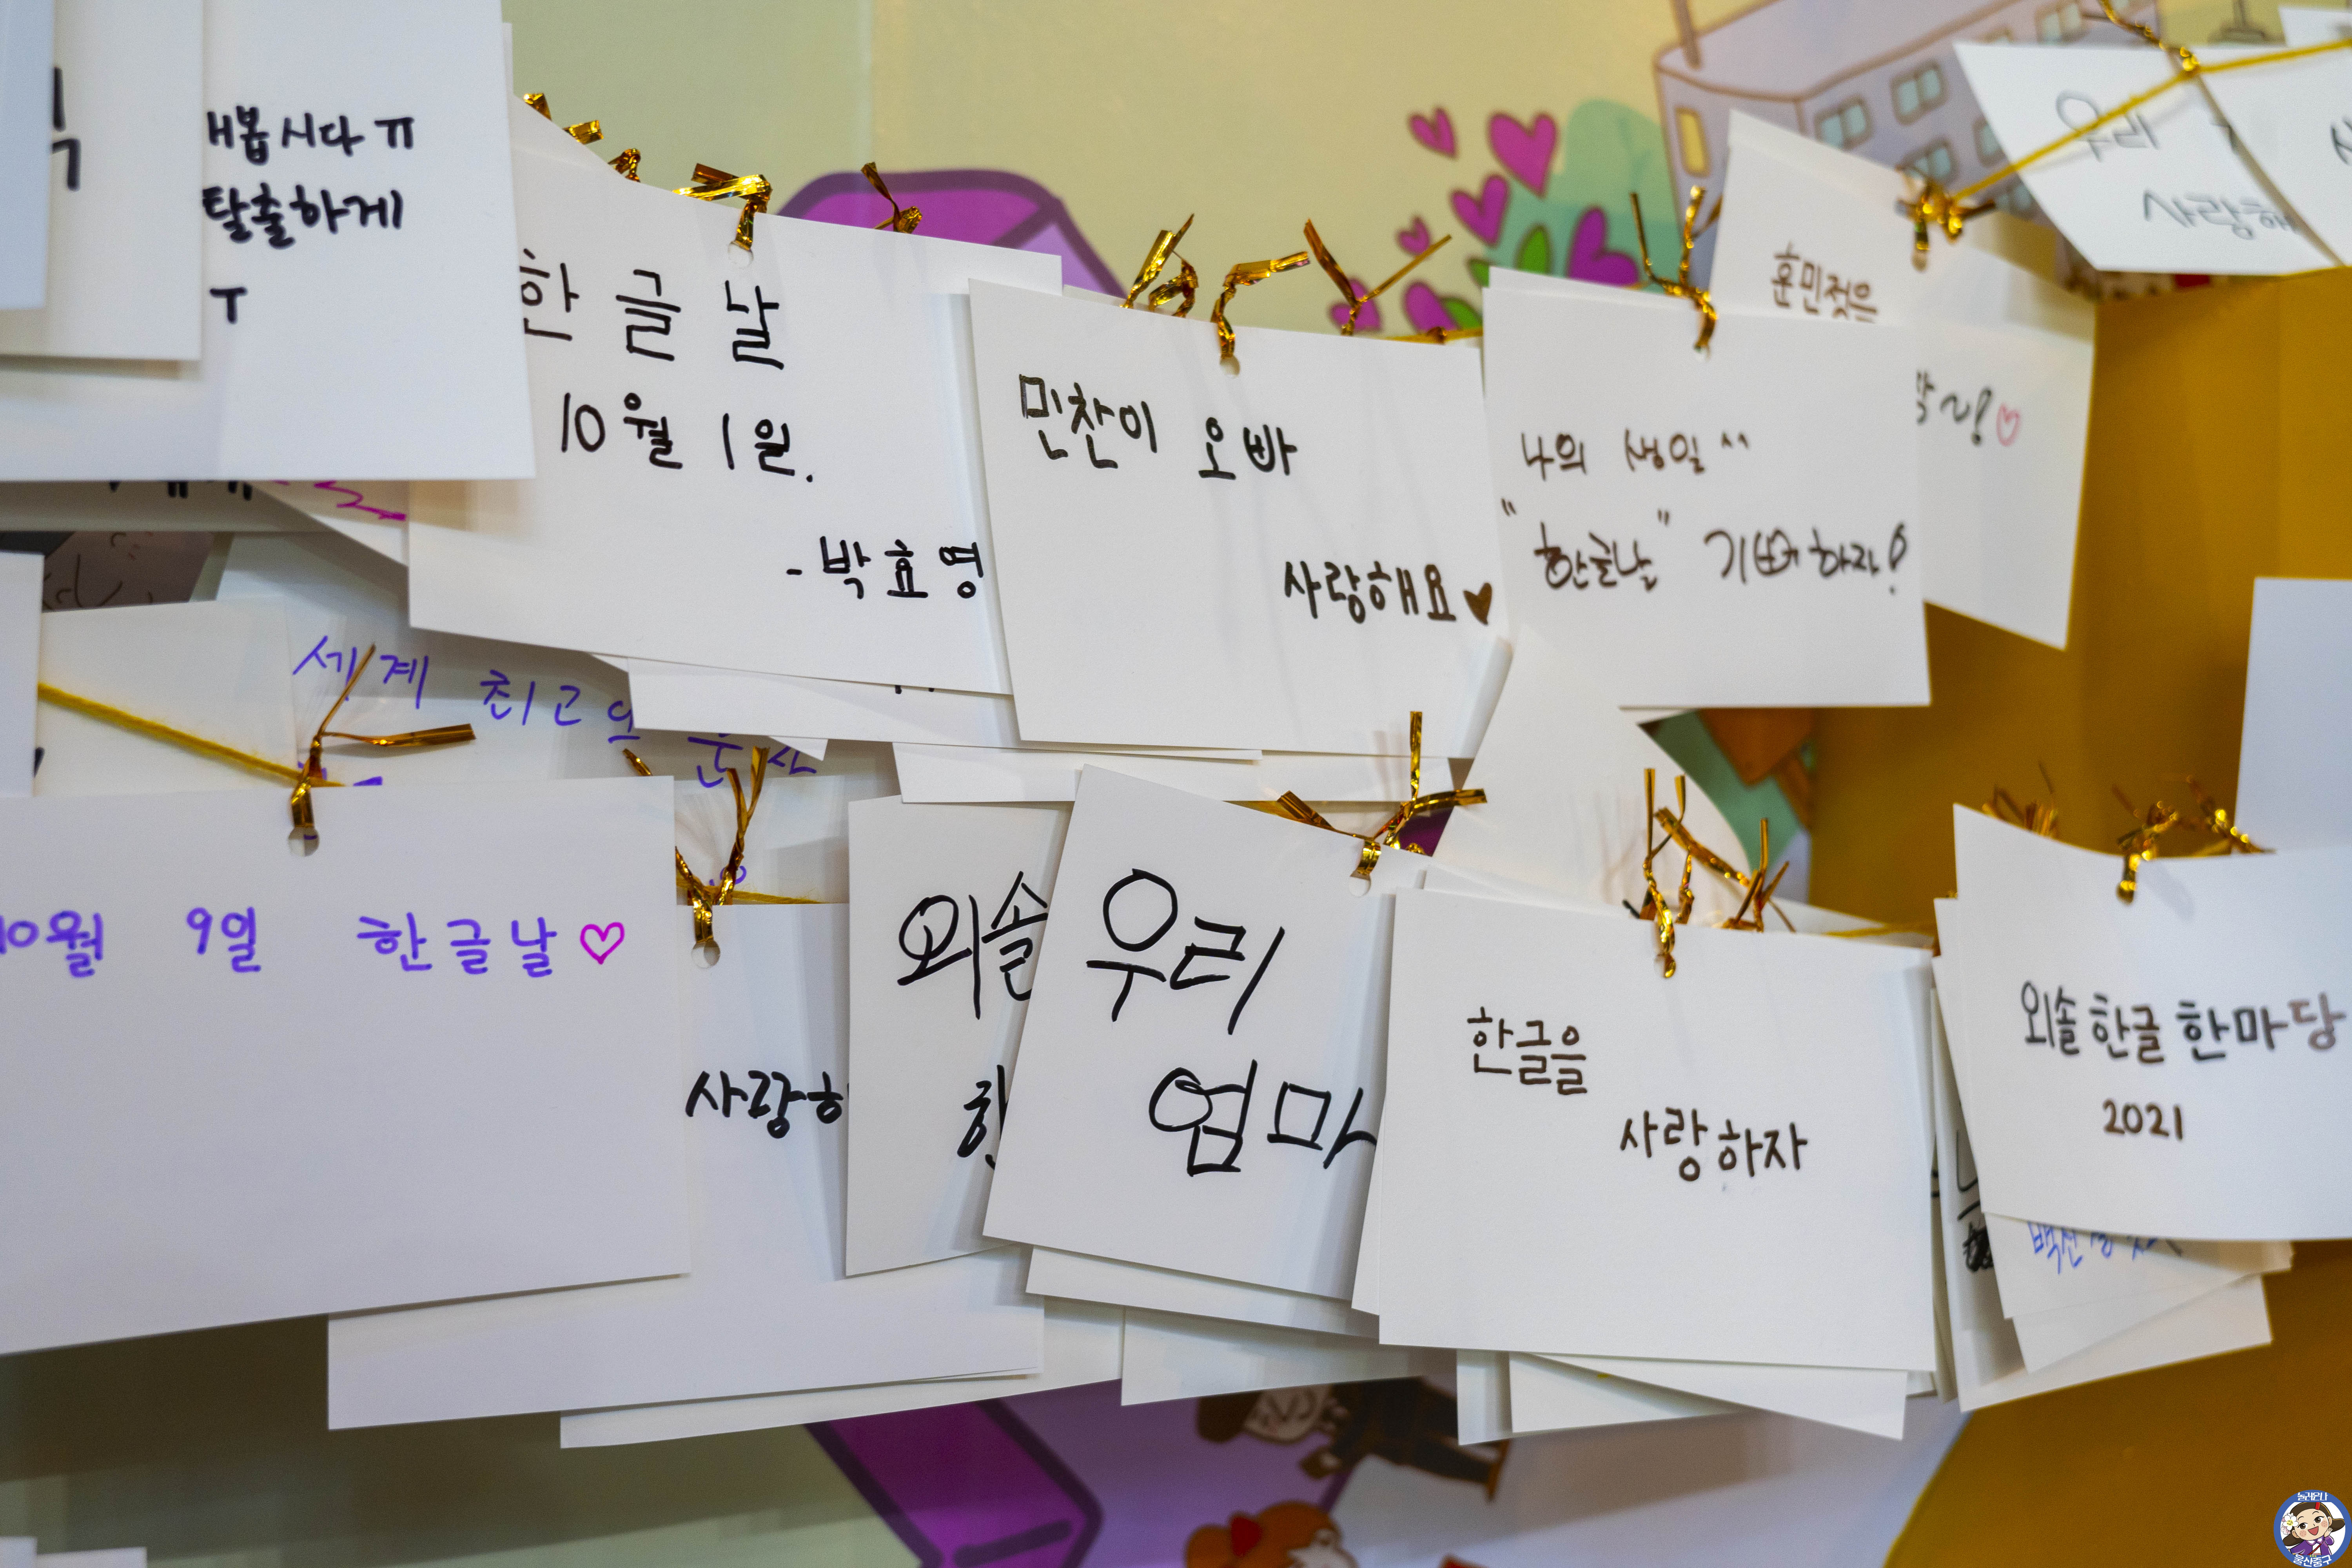 해봅시다 ㅠ
탈출하게
ㅜ
한글날
10월 1일.
-박효영
민찬이 오빠
사랑해요♥
훈민정음
나의 생일 ^^
"한글날" 기뻐하자!
우리
사랑해
세계 최고의
10월 9일 한글날♡
사랑하
외솔
한
우리
엄마
한글을
사랑하자
외솔 한글 한마당
2021
울산중구